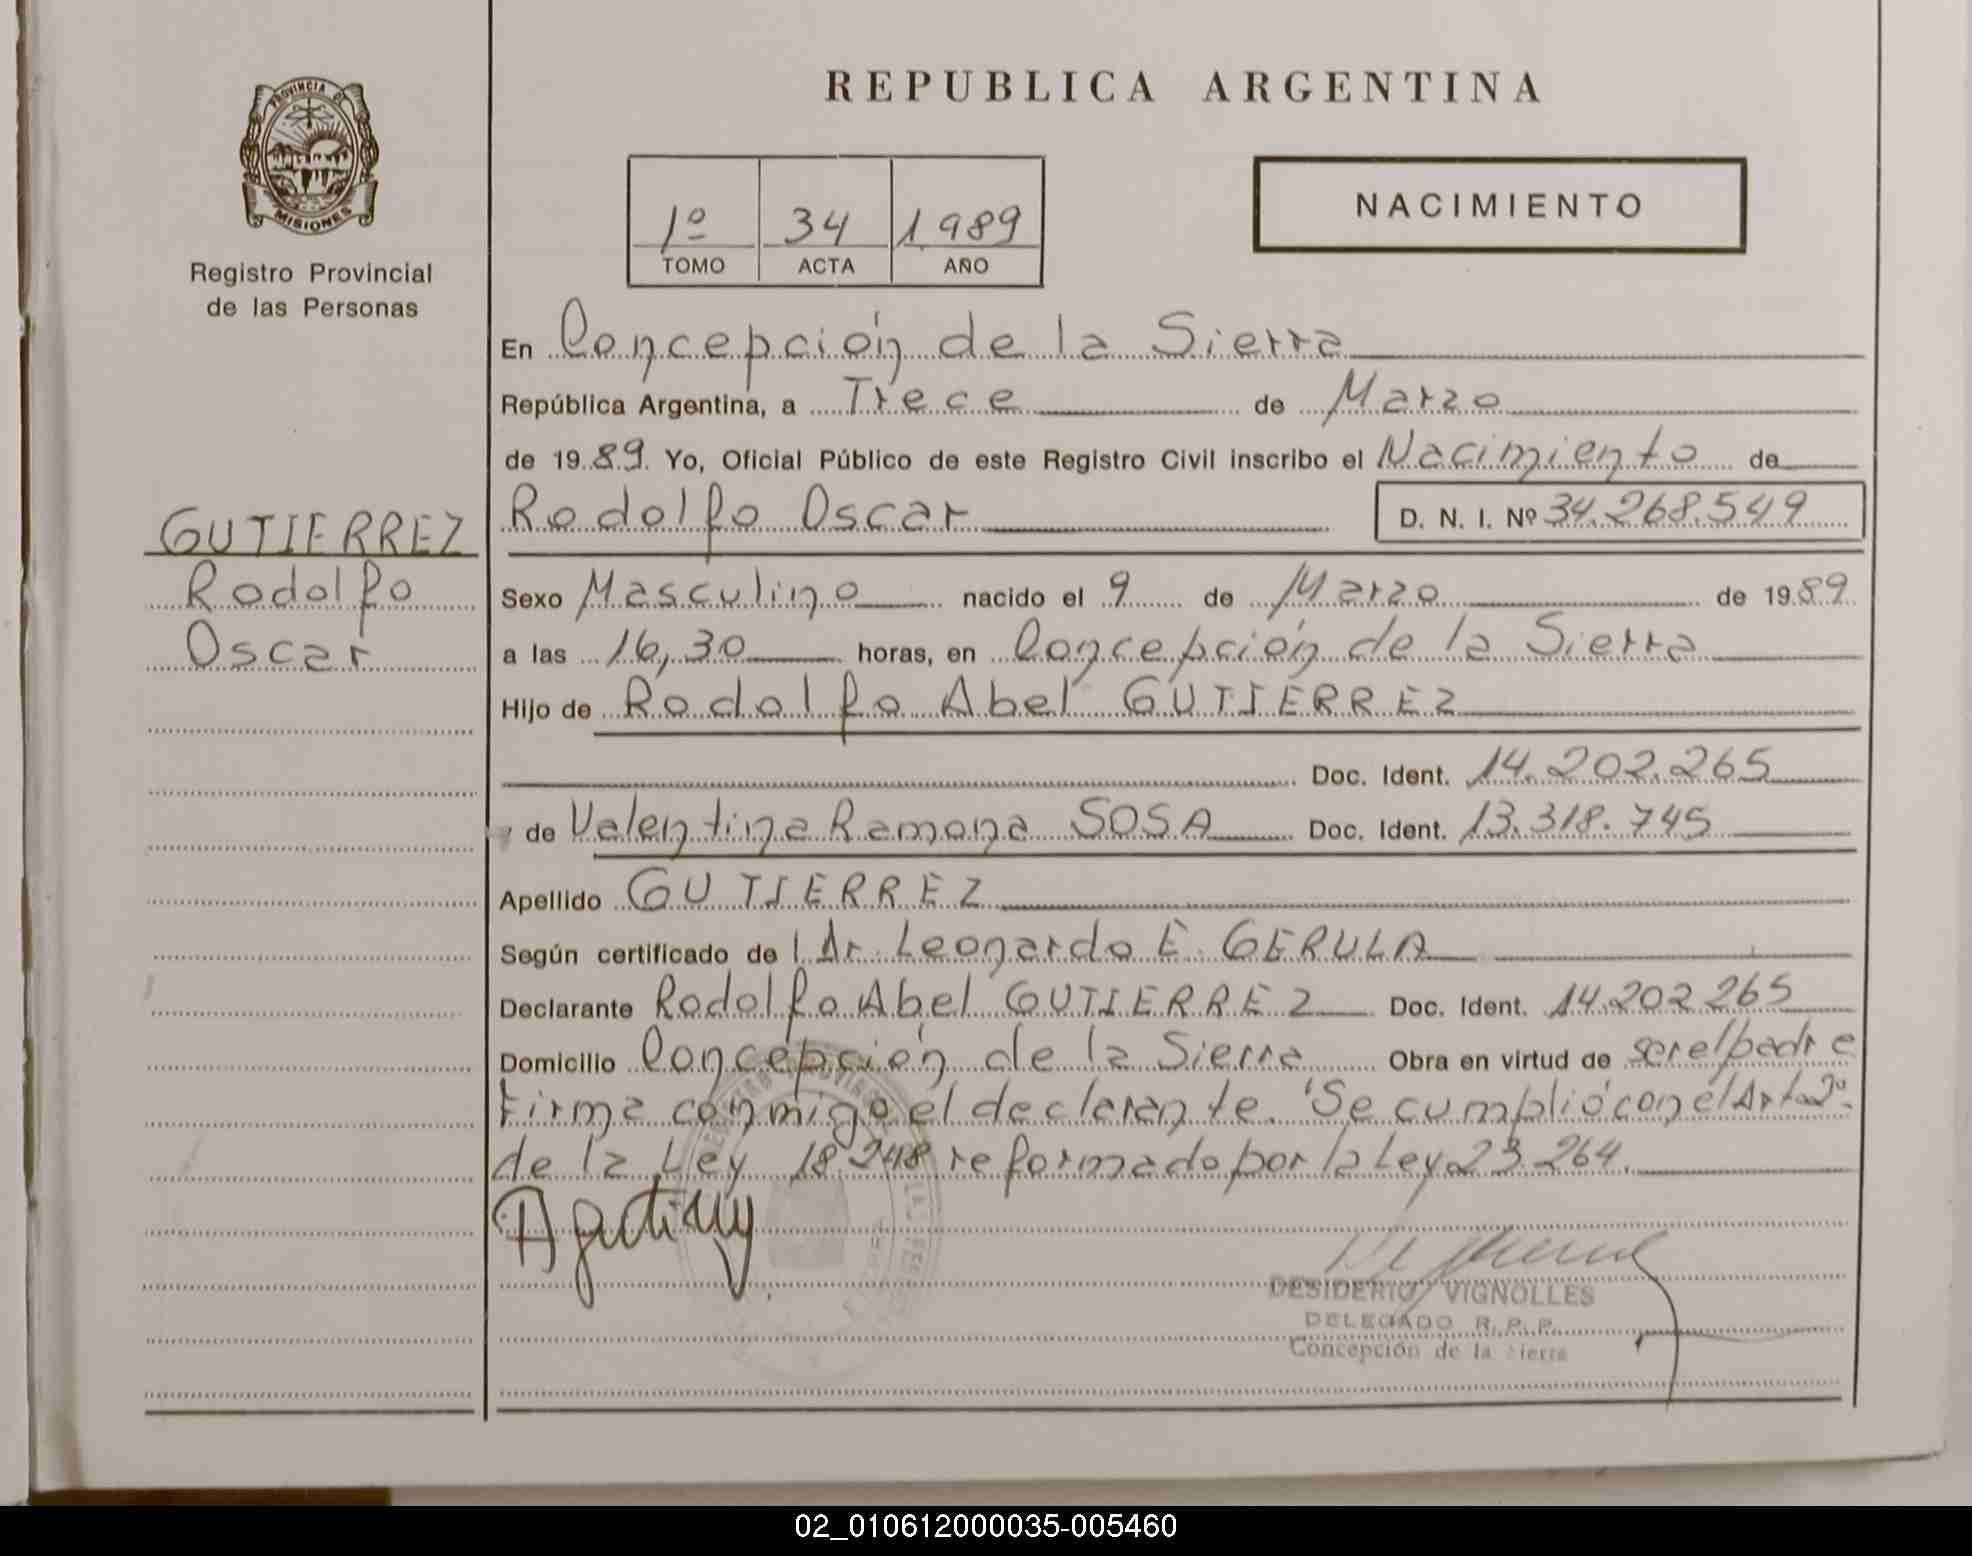 PROVINCIA DE
MISIONES
Registro Provincial
de las Personas
GUTIERREZ
Rodolfo
Oscar
REPUBLICA ARGENTINA
1º 34 1989
TOMO ACTA AÑO
NACIMIENTO
En Concepción de la Sierra
República Argentina, a Trece de Marzo
de 1989. Yo, Oficial Público de este Registro Civil inscribo el Nacimiento de
Rodolfo Oscar D. N. I. Nº 34.268.549
Sexo Masculino nacido el 9 de Marzo de 1989
a las 16,30 horas, en Concepción de la Sierra
Hijo de Rodolfo Abel GUTIERREZ
Doc. Ident. 14.202.265
y de Valentina Ramona SOSA Doc. Ident. 13.318.745
Apellido GUTIERREZ
Según certificado de l Dr. Leonardo E. GERULA
Declarante Rodolfo Abel GUTIERREZ Doc. Ident. 14.202.265
Domicilio Concepción de la Sierra Obra en virtud de ser el padre
Firma conmigo el declarante. "Se cumplió con el Art. 2º.
de la Ley 18248 reformado por la Ley 23.264.
DESIDERIO VIGNOLLES
DELEGADO R.P.P.
Concepción de la Sierra
02_010612000035-005460